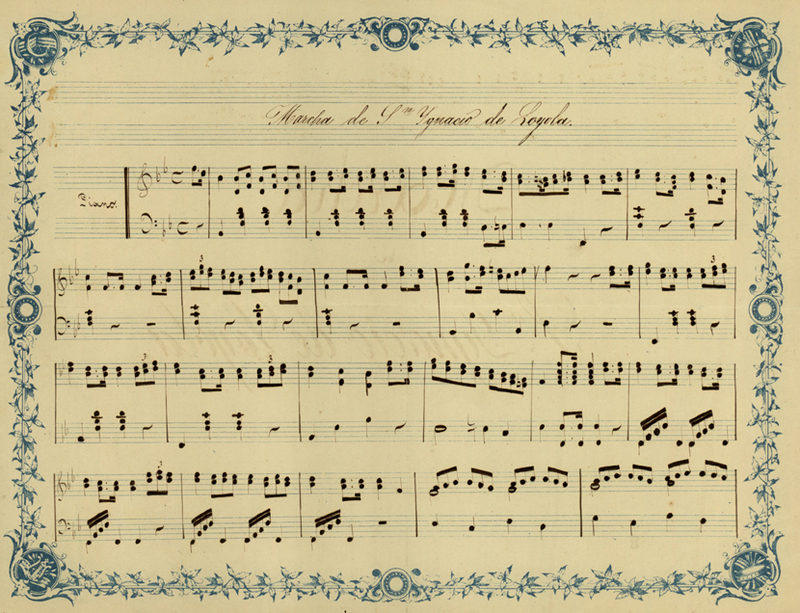 Marcha de Sn Ygnacio de Loyola.
Piano.
3
3
3 3
3